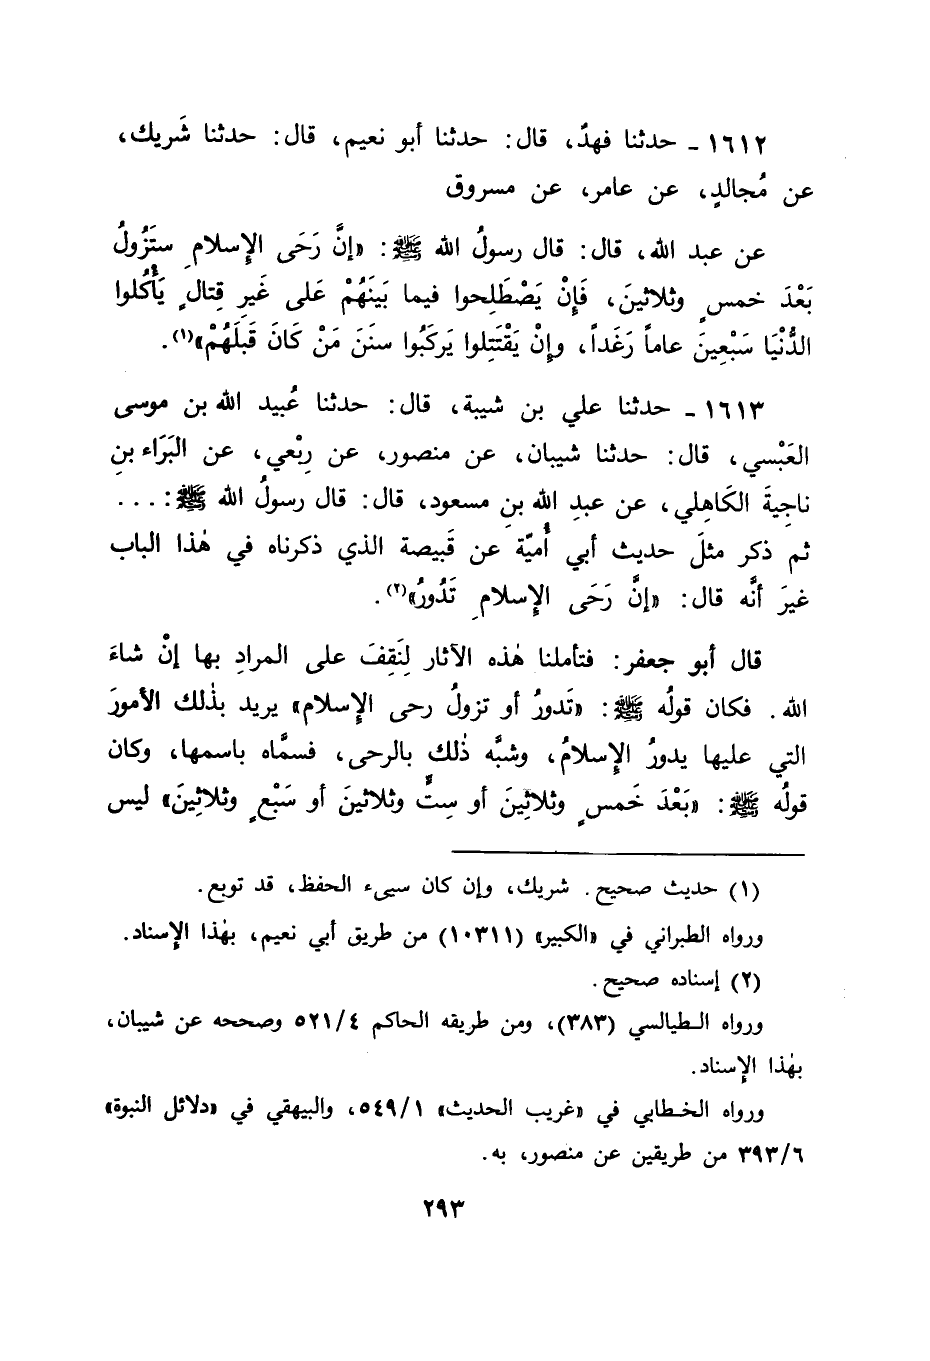 ١٦١٢ ـ حدثنا فهدٌ، قال: حدثنا أبو نعيم، قال: حدثنا شَريك،
عن مُجالدٍ، عن عامر، عن مسروق
عن عبد الله، قال: قال رسولُ الله ﷺ: «إنَّ رَحَى الإِسلامِ ستَزُولُ
بَعْدَ خمسٍ وثلاثينَ، فَإنْ يَصْطَلِحوا فيما بَينَهُمْ عَلى غَيرِ قِتالٍ يَأْكُلوا
الدُّنْيَا سَبْعِينَ عاماً رَغَداً، وإنْ يَقْتَتِلوا يَركَبُوا سنَنَ مَنْ كَانَ قَبلَهُمْ»(١).
١٦١٣ ـ حدثنا علي بن شيبة، قال: حدثنا عُبيد الله بن موسى
العَبْسي، قال: حدثنا شيبان، عن منصور، عن رِبْعي، عن البَرَاء بنِ
ناجِيةَ الكَاهِلي، عن عبدِ الله بنِ مسعود، قال: قال رسولُ الله ﷺ: . . .
ثم ذكر مثلَ حديث أبي أُميّة عن قَبيصة الذي ذكرناه في هٰذا الباب
غيرَ أنَّه قال: «إنَّ رَحَى الإِسلامِ تَدُورُ»(٢).
قال أبو جعفر: فتأملنا هٰذه الآثار لِنَقِفَ على المرادِ بها إنْ شاءَ
الله. فكان قولُه ﷺ: «تَدورُ أو تزولُ رحى الإِسلام» يريد بذٰلك الأمورَ
التي عليها يدورُ الإِسلامُ، وشبَّه ذٰلك بالرحى، فسمَّاه باسمها، وكان
قولُه ﷺ: «بَعْدَ خَمسٍ وثلاثِينَ أو سِتٍّ وثلاثينَ أو سَبْعٍ وثلاثِينَ» ليس
(١) حديث صحيح. شريك، وإن كان سيىء الحفظ، قد توبع.
ورواه الطبراني في «الكبير» (١٠٣١١) من طريق أبي نعيم، بهٰذا الإِسناد.
(٢) إسناده صحيح.
ورواه الطيالسي (٣٨٣)، ومن طريقه الحاكم ٥٢١/٤ وصححه عن شيبان،
بهٰذا الإِسناد.
ورواه الخطابي في «غريب الحديث» ٥٤٩/١، والبيهقي في «دلائل النبوة»
٣٩٣/٦ من طريقين عن منصور، به.
٢٩٣